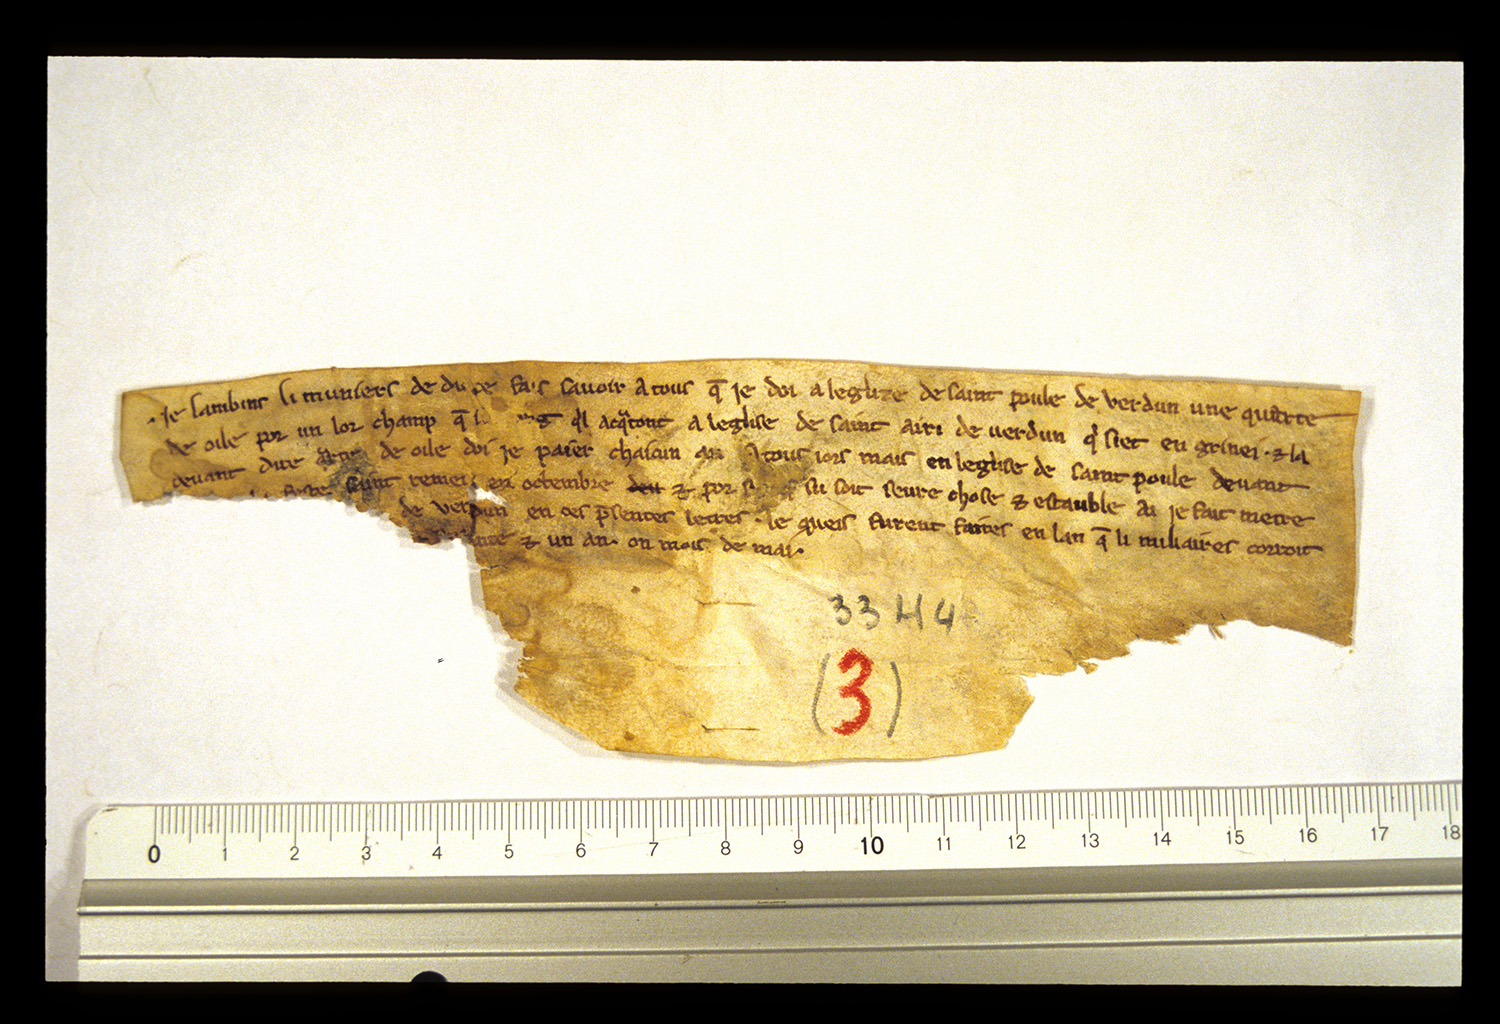 · Je lambins li muniers de du fais savoir a tous q̄ je doi a leglize de saint poule de verdun une quarte
de oile por un lor champ q̄ q̄l acq̄tont a leglise de saint airi de uerdun q̇ siet en grinei · ⁊ la
devant dite de oile doi je paier chascun an a tous iors mais en leglise de saint poule devant
feste saint remei en octembre ⁊ por soit seure chose ⁊ estauble ai je fait metre
de verdun en ces p̄sentes letres · le queis furent faites en lan q̄ li miliaires corroit
⁊ un an · on mois de mai ·
33 H 4
(3)
0 1 2 3 4 5 6 7 8 9 10 11 12 13 14 15 16 17 18